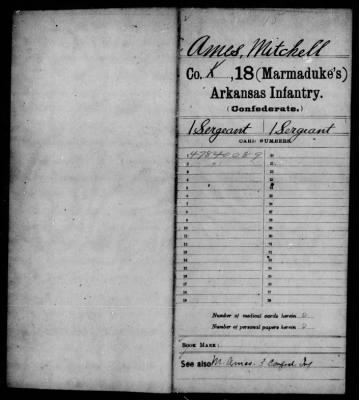 Ames, Mitchell
Co. K, 18 (Marmaduke's)
Arkansas Infantry.
(Confederate.)
1 Sergeant 1 Sergeant
CARD NUMBERS.
1 49840089 20
2 21
3 22
4 23
5 24
6 25
7 26
8 27
9 28
10 29
11 30
12 31
13 32
14 33
15 34
16 35
17 36
18 37
19 38
Number of medical cards herein 0
Number of personal papers herein 0
BOOK MARK:
See also M. Ames. 3 Confed. Inf